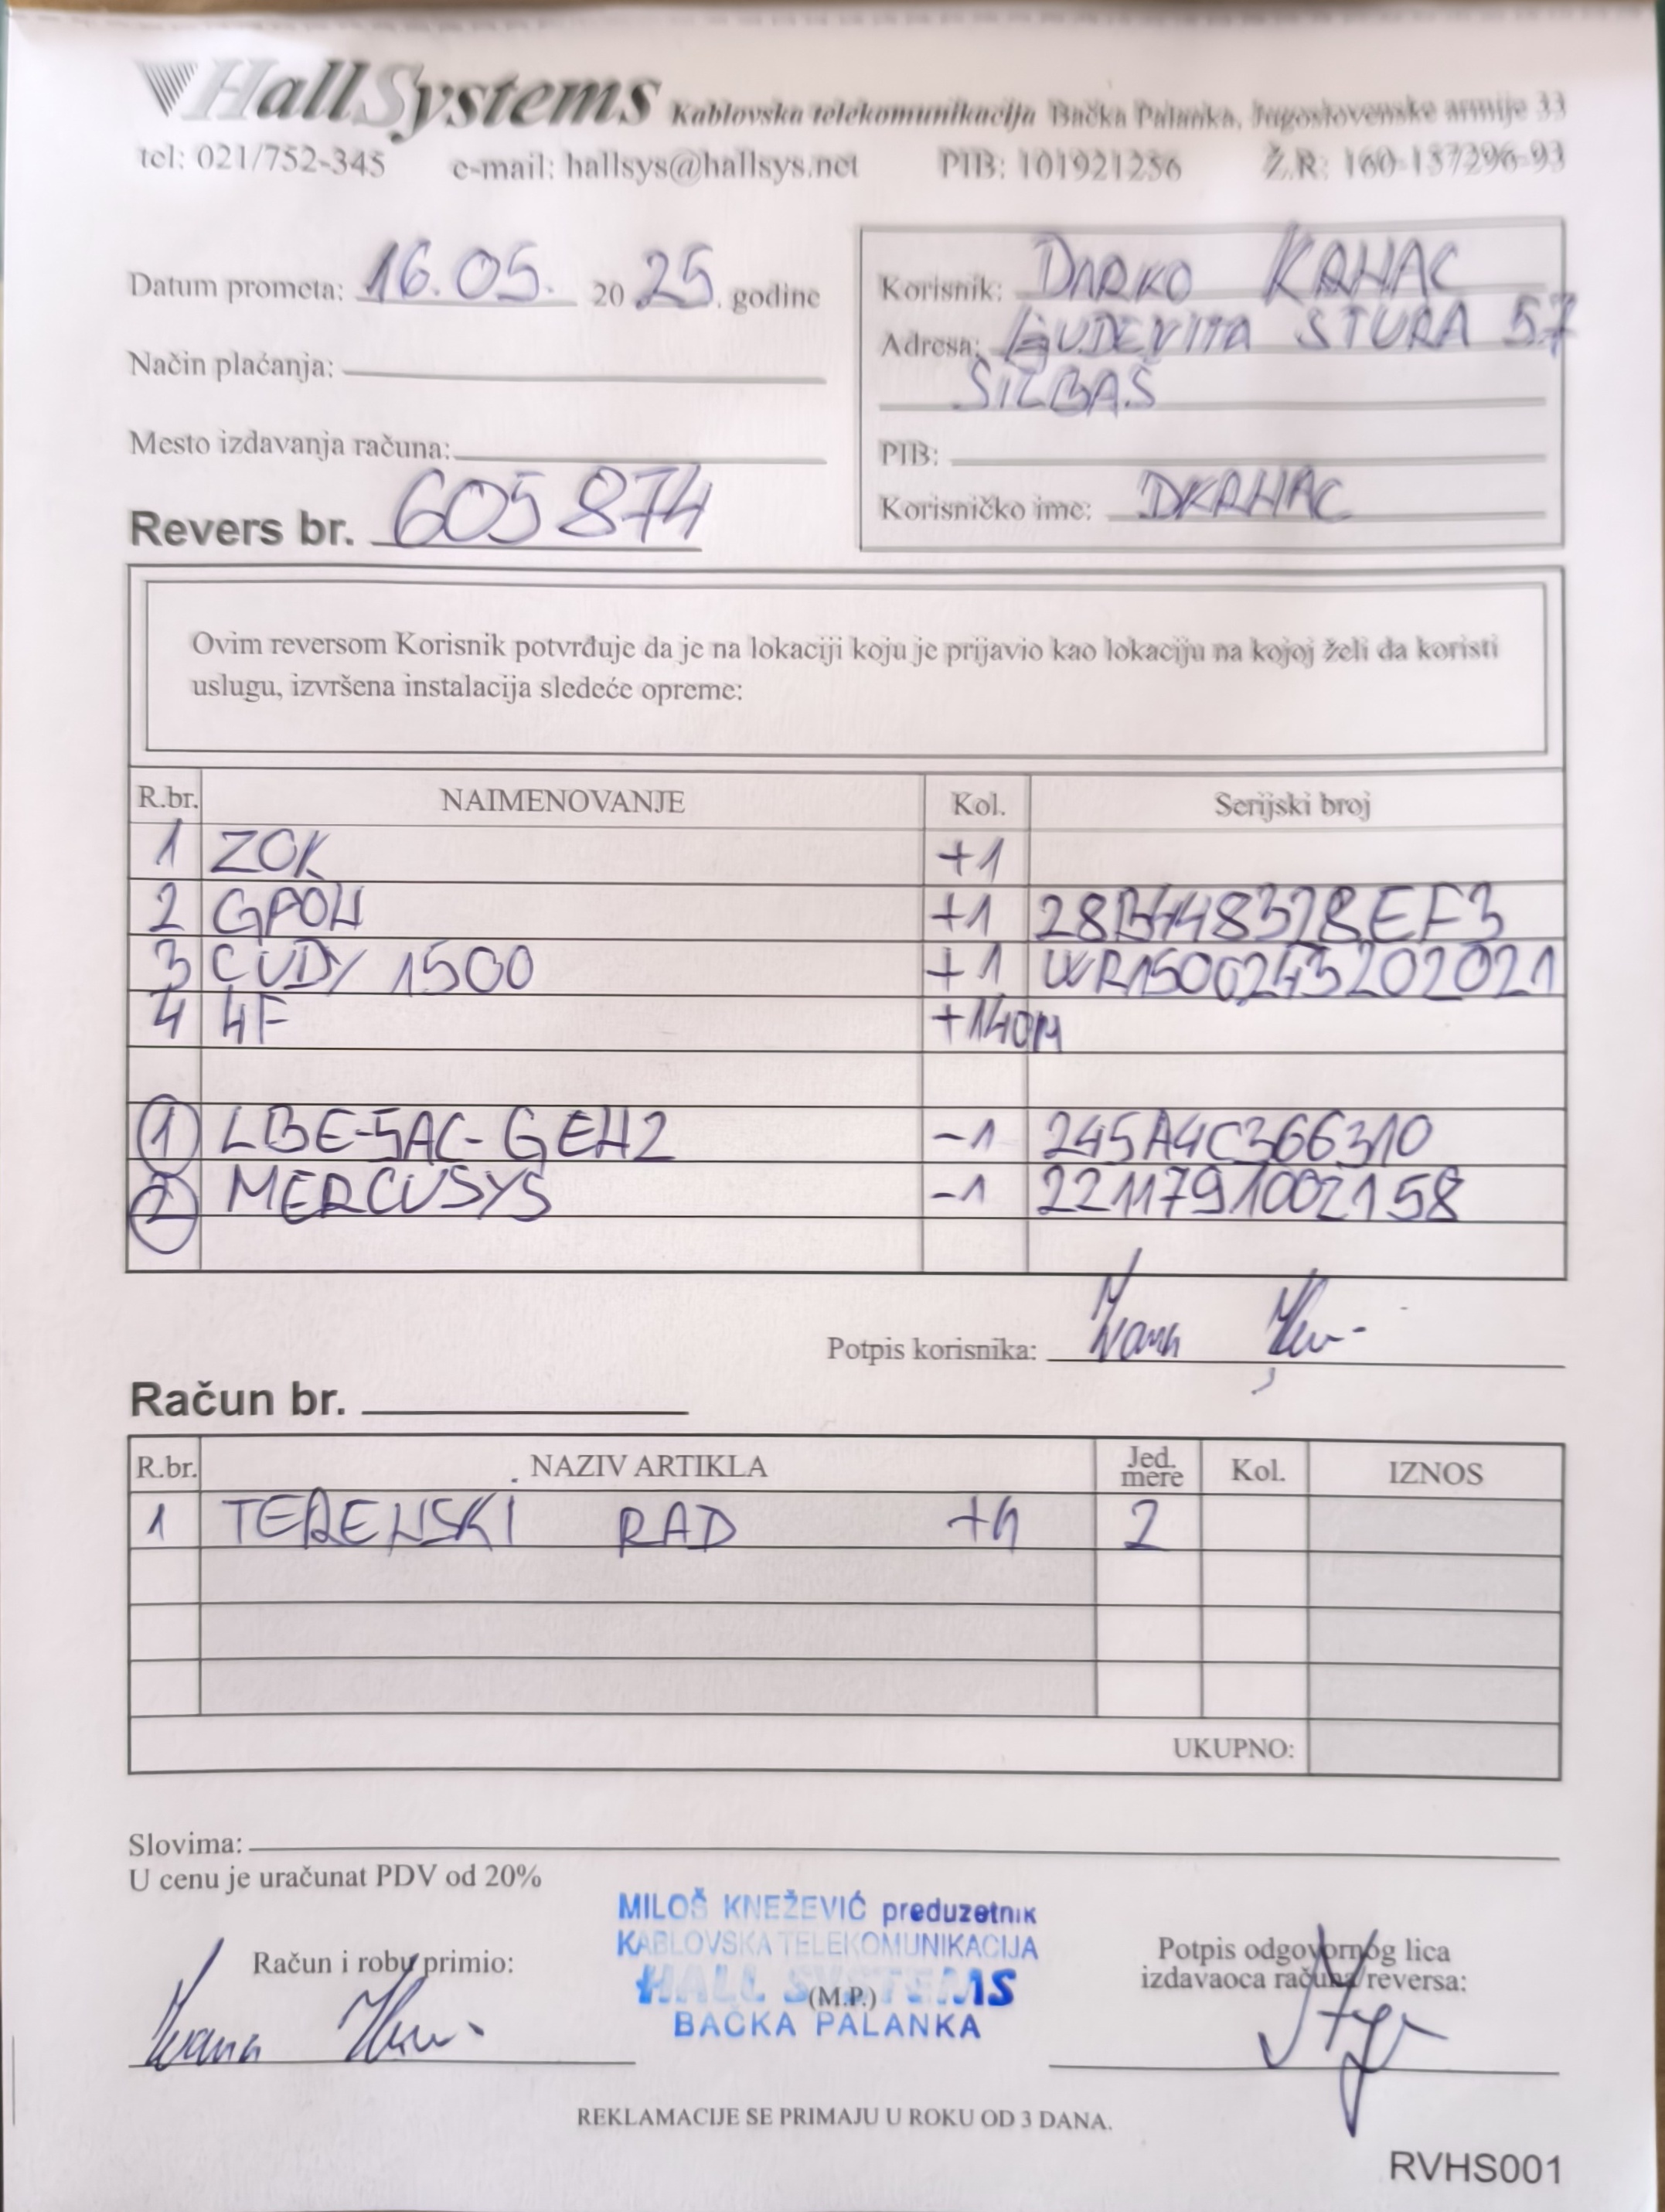 HallSystems Kablovska telekomunikacija Bačka Palanka, Jugoslovenske armije 33
tel: 021/752-345 e-mail: hallsys@hallsys.net PIB: 101921256 Ž.R: 160-137296-93
Datum prometa: 16.05. 2025. godine
Način plaćanja:
Mesto izdavanja računa:
Revers br. 605874
Korisnik: DARKO KRHAC
Adresa: LJUDEVITA STURA 57
SILBAŠ
PIB:
Korisničko ime: DKRHAC
Ovim reversom Korisnik potvrđuje da je na lokaciji koju je prijavio kao lokaciju na kojoj želi da koristi
uslugu, izvršena instalacija sledeće opreme:
R.br. NAIMENOVANJE Kol. Serijski broj
1 ZOK +1
2 GPON +1 28B448378EF3
3 CUDY 1500 +1 WR1500243202021
4 4F +140M
1 LBE-5AC-GEN2 -1 245A4C366310
2 MERCUSYS -1 2211791002158
Potpis korisnika: Ivana
Račun br.
R.br. NAZIV ARTIKLA Jed. mere Kol. IZNOS
1 TERENSKI RAD +h 2
UKUPNO:
Slovima:
U cenu je uračunat PDV od 20%
MILOŠ KNEŽEVIĆ preduzetnik
KABLOVSKA TELEKOMUNIKACIJA
HALL SYSTEMS
BAČKA PALANKA
(M.P.)
Račun i robu primio:
Ivana
Potpis odgovornog lica
izdavaoca računa/reversa:
REKLAMACIJE SE PRIMAJU U ROKU OD 3 DANA.
RVHS001